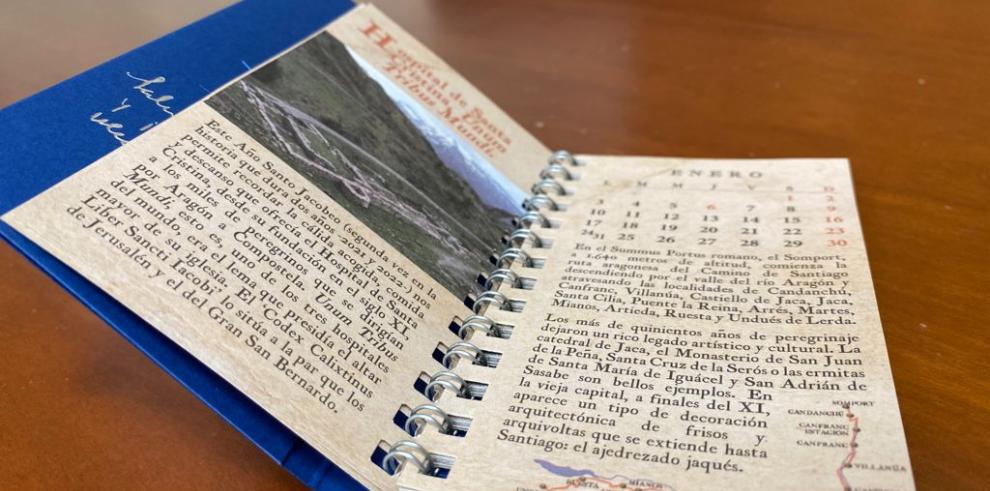 Hospital de Santa
Cristina, Unum
Tribus Mundi.
Este Año Santo Jacobeo (segunda vez en la
historia que dura dos años -2021 y 2022-) nos
permite recordar la cálida acogida, comida
y descanso que ofrecía el Hospital de Santa
Cristina, desde su fundación en el siglo XI,
a los miles de peregrinos que se dirigían
por Aragón a Compostela. Unum Tribus
Mundi; esto es, uno de los tres hospitales
del mundo, era el lema que presidía el altar
mayor de su iglesia. El 'Codex Calixtinus
Liber Sancti Iacobi' lo sitúa a la par que los
de Jerusalén y el del Gran San Bernardo.
ENERO
L M M J V S D
1 2
3 4 5 6 7 8 9
10 11 12 13 14 15 16
17 18 19 20 21 22 23
24 31 25 26 27 28 29 30
En el Summus Portus romano, el Somport,
a 1.640 metros de altitud, comienza la
ruta aragonesa del Camino de Santiago
descendiendo por el valle del río Aragón y
atravesando las localidades de Candanchú,
Canfranc, Villanúa, Castiello de Jaca, Jaca,
Santa Cilia, Puente la Reina, Arrés, Martes,
Mianos, Artieda, Ruesta y Undués de Lerda.
Los más de quinientos años de peregrinaje
dejaron un rico legado artístico y cultural. La
catedral de Jaca, el Monasterio de San Juan
de la Peña, Santa Cruz de la Serós o las ermitas
de Santa María de Iguácel y San Adrián de
Sasabe son bellos ejemplos. En
la vieja capital, a finales del XI,
aparece un tipo de decoración
arquitectónica de frisos y
arquivoltas que se extiende hasta
Santiago: el ajedrezado jaqués.
SOMPORT
CANDANCHÚ
CANFRANC
ESTACIÓN
CANFRANC
VILLANÚA
MIANOS